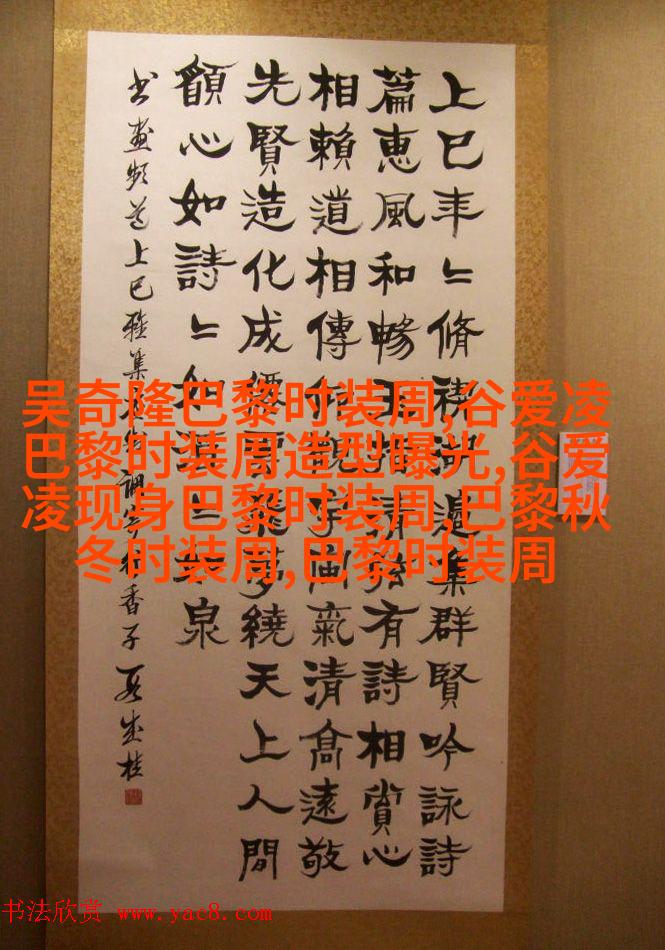 上巳年〻脩禊湖邊集群賢吟詠詩
篇惠風和暢有詩相賞心
相賴道相傳氣清高遠敬
先賢造化成夢繞天上人間
願心如詩〻如〻如泉
书画频道上巳雅集调寄行香子
吴奇隆巴黎时装周,谷爱凌
巴黎时装周造型曝光,谷爱
凌现身巴黎时装周,巴黎秋
冬时装周,巴黎时装周
书法欣赏 www.yac8.com